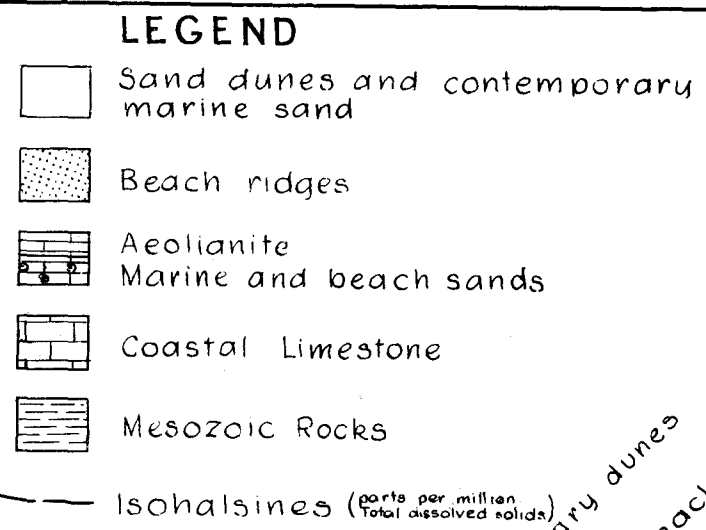 LEGEND
Sand dunes and contemporary
marine sand
Beach ridges
Aeolianite
Marine and beach sands
Coastal Limestone
Mesozoic Rocks
Isohalsines (parts per million
Total dissolved solids)
dunes